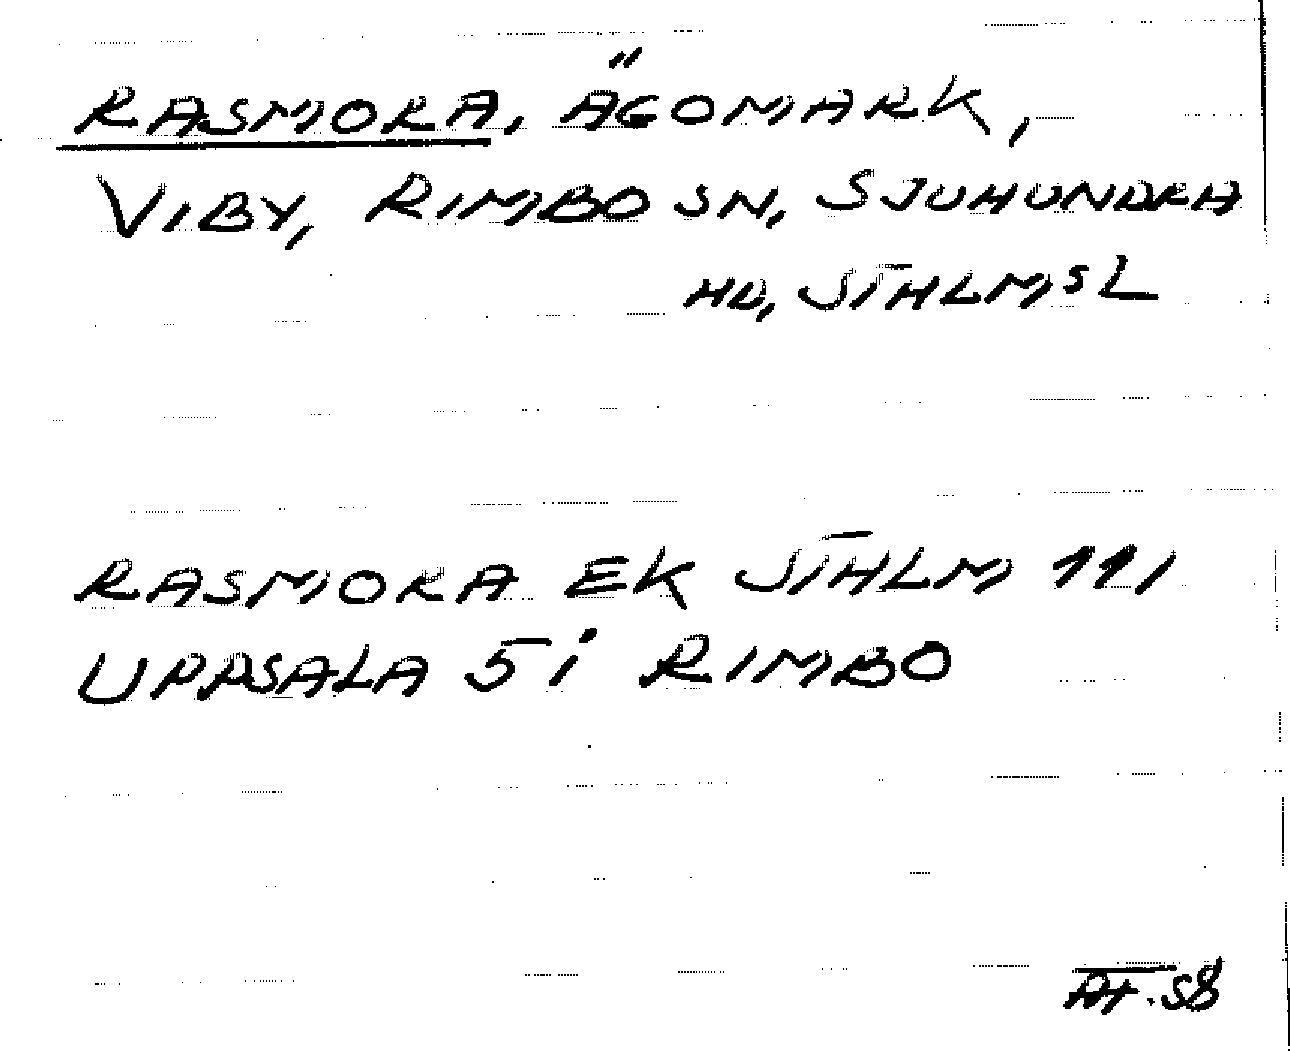 RASMORA, ÄGOMARK,
VIBY, RIMBO SN, SJUHUNDRA
HD, STHLMS L
RASMORA EK STHLM 111
UPPSALA 5 i RIMBO
AT.58